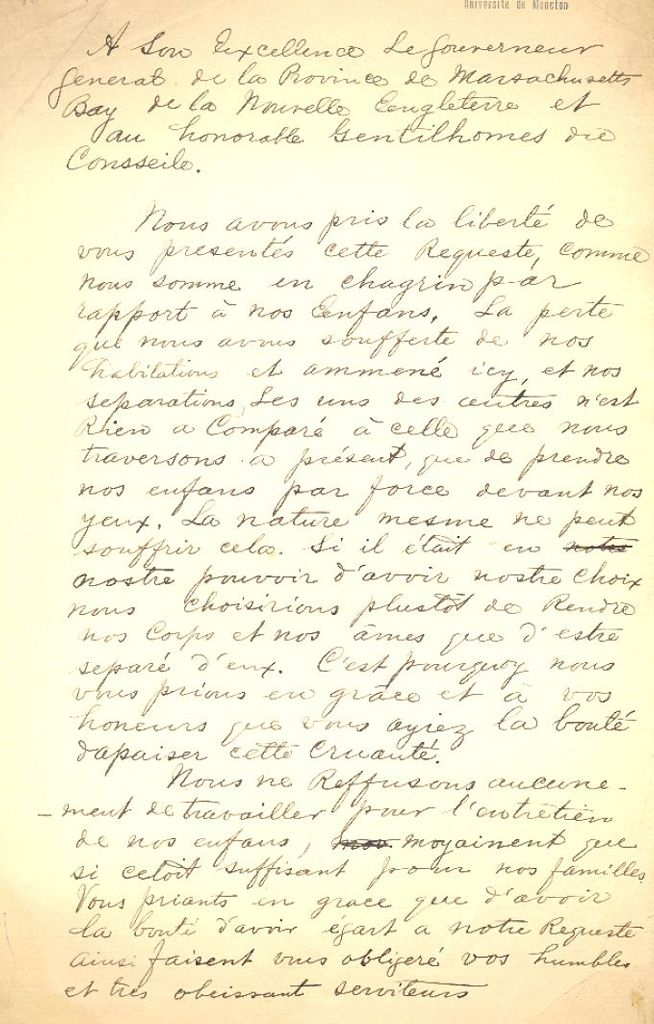 Université de Moncton
A Son Excellence Le Gouverneur
General de la Province de Massachusetts
Bay de la Nouvelle Eengleterre et
au honorable Gentilhomes du
Consseile.
Nous avons pris la liberté de
vous presentés cette Requeste, comme
nous somme en chagrin par
rapport à nos Eenfans. La perte
que nous avons soufferte de nos
habitations et ammené icy, et nos
separations, Les uns des autres n'est
Rien a Comparé à celle que nous
traversons a présent, que de prendre
nos enfans par force devant nos
yeux. La nature mesme ne peut
souffrir cela. Si il était en notre
nostre pouvoir d'avoir nostre Choix
nous choisirions plustôt de Rendre
nos Corps et nos âmes que d'estre
separé d'eux. C'est pourquoy nous
vous prions en grâce et à vos
honeurs que vous ayiez la bonté
d'apaiser cette Cruauté.
Nous ne Reffusons aucune-
-ment de travailler pour l'entretien
de nos enfans, moyainent que
si cetoit suffisant pour nos familles.
Vous priants en grace que d'avoir
la bonté d'avoir égart a notre Requeste
ainsi faisent vous obligeré vos humbles
et tres obeissant serviteurs